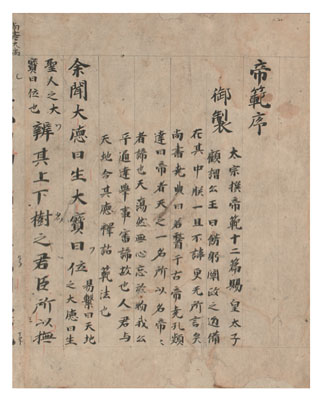 帝範序
御製
太宗撰帝範十二篇賜皇太子
顧謂公王曰飭躬闡政之道備
在其中朕一旦不諱更无所言矣
尚書堯典曰若稽古帝堯孔穎
達曰帝者天之一名所以名帝〻
者諦也天蕩然無心忘於物我公
平通達舉事審諦故也人君与
天地合其應 範法也
余聞大德曰生大寶曰位 易繫曰天地之大德曰生
聖人之大寶曰位也 辨其上下樹之君臣所以撫